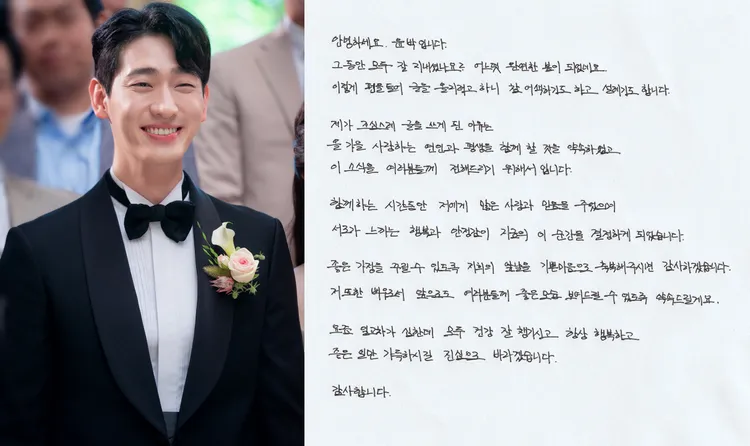 안녕하세요. 윤박입니다.
그동안 모두 잘 지내셨나요? 어느덧 완연한 봄이 되었네요
이렇게 펜을 들어 글을 올리려고 하니 참 어색하기도 하고 설레기도 합니다.
제가 조심스레 글을 쓰게 된 이유는
올 가을 사랑하는 연인과 평생을 함께 할 것을 약속하였고
이 소식을 여러분들께 전해드리기 위해서 입니다.
함께하는 시간동안 저에게 많은 사랑과 믿음을 주었으며
서로가 느끼는 행복과 안정감이 지금의 이 순간을 결정하게 되었습니다.
좋은 가정을 꾸릴 수 있도록 저희의 앞날을 기쁜마음으로 축복해주시면 감사하겠습니다.
저 또한 배우로서 앞으로도 여러분들께 좋은 모습 보여드릴 수 있도록 약속드릴게요.
요즘 일교차가 심한데 모두 건강 잘 챙기시고 항상 행복하고
좋은 일만 가득하시길 진심으로 바라겠습니다.
감사합니다.